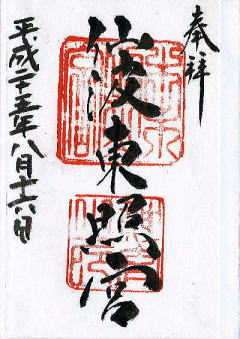 奉拝
仙波東照宮
平成二十五年八月十六日